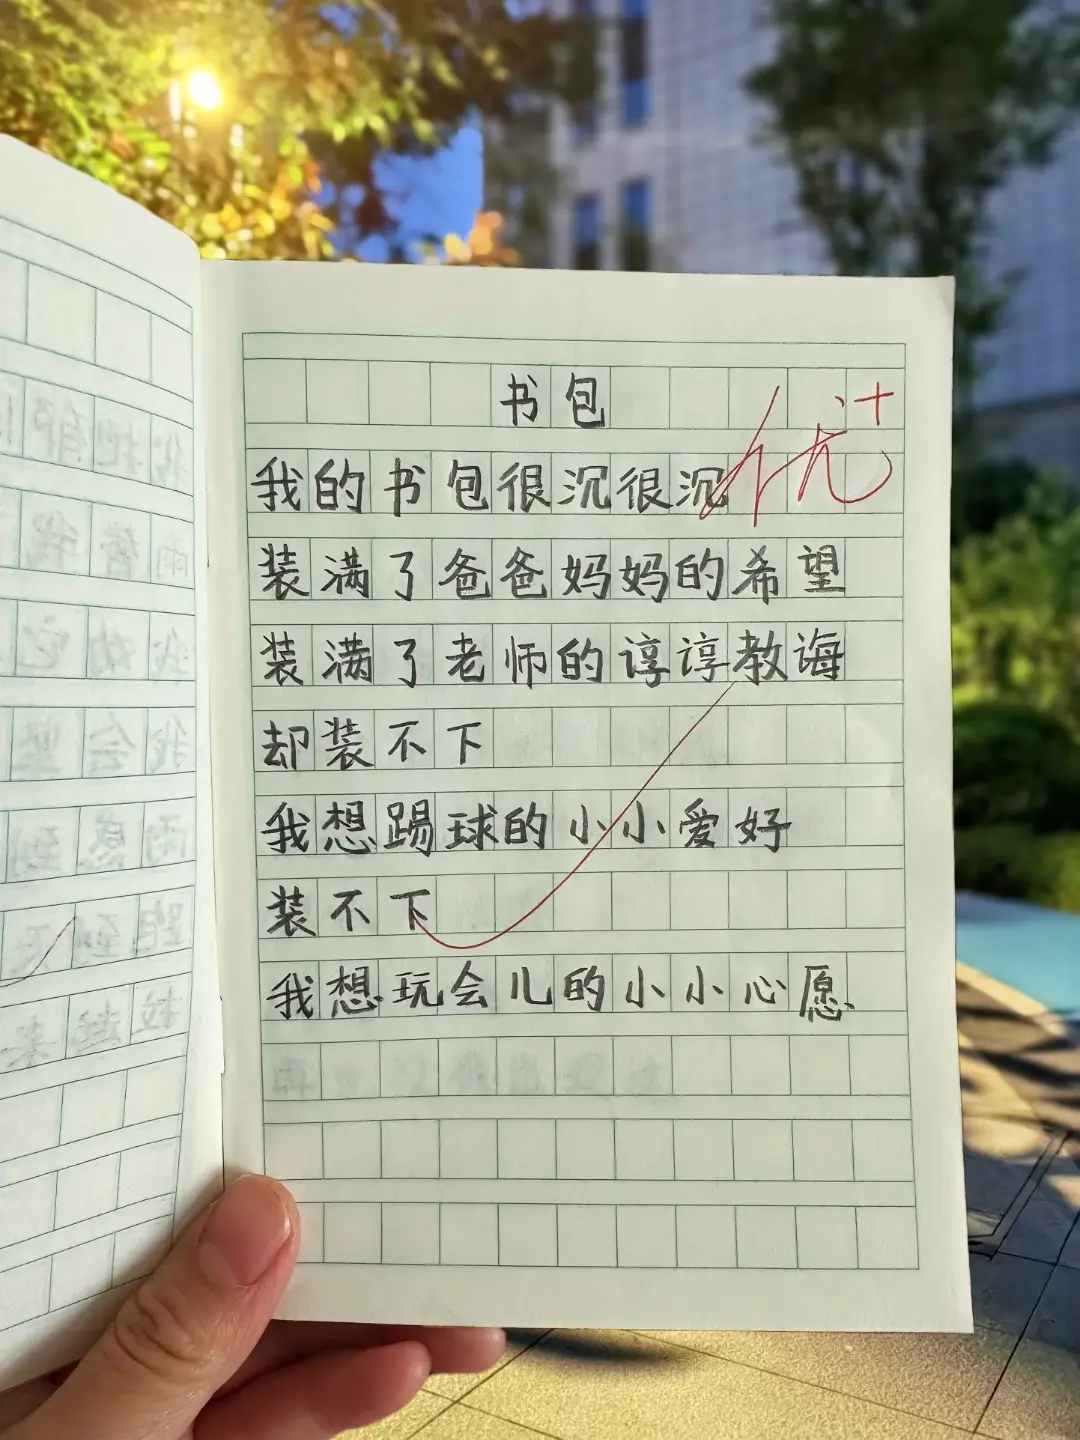 书包
优+
我的书包很沉很沉
装满了爸爸妈妈的希望
装满了老师的谆谆教诲
却装不下
我想踢球的小小爱好
装不下
我想玩会儿的小小心愿